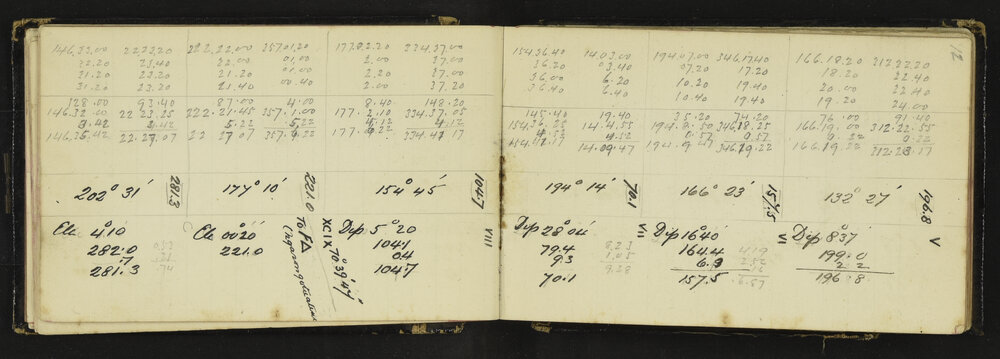 146.32.00 22.23.20 222.22.00 357.01.20 177.02.20 334.37.00
32.20 23.40 22.00 01.00 2.00 37.00
31.20 23.20 21.20 01.00 2.00 37.00
31.20 23.20 21.40 00.40 2.00 37.20
128.00 93.40 87.00 4.00 8.40 148.20
146.32.00 22.23.25 222.21.45 357.1.00 177.2.10 334.37.05
5.22 5.22 4.12 4.12
146.35.42 22.27.07 357.6.22 334.41.17
202° 31' 281.3 177° 10' 221.0 154° 45' 104.7
VIII
Ele 4°10'
282.0
.7
281.3
Ele 00°20'
221.0
To FΔ
XCIX 70°39'47"
Dip 5°20'
104.1
0.4
104.7
12
154.36.40 14.03.00 194.07.00 346.17.40 166.18.20 312.22.20
36.20 03.40 07.20 17.20 18.20 22.40
36.00 6.20 10.20 19.40 20.00 22.20
36.40 6.40 10.40 19.40 19.20 24.00
145.40 19.40 35.20 74.20 76.00 91.40
154.36.25 14.4.55 194.8.50 346.18.25 166.19.00 312.22.55
4.52 .57 9.57
14.09.47 194.9.47 346.19.22 312.23.17
194° 14' 70.1 166° 23' 157.5 132° 27' 196.8
VII VI V
Dip 28°04'
79.4
9.3
70.1
8.23
1.05
9.28
Dip 16°40'
164.4
6.9
157.5
4.19
2.52
6.57
Dip 8°37'
199.0
2.2
196.8